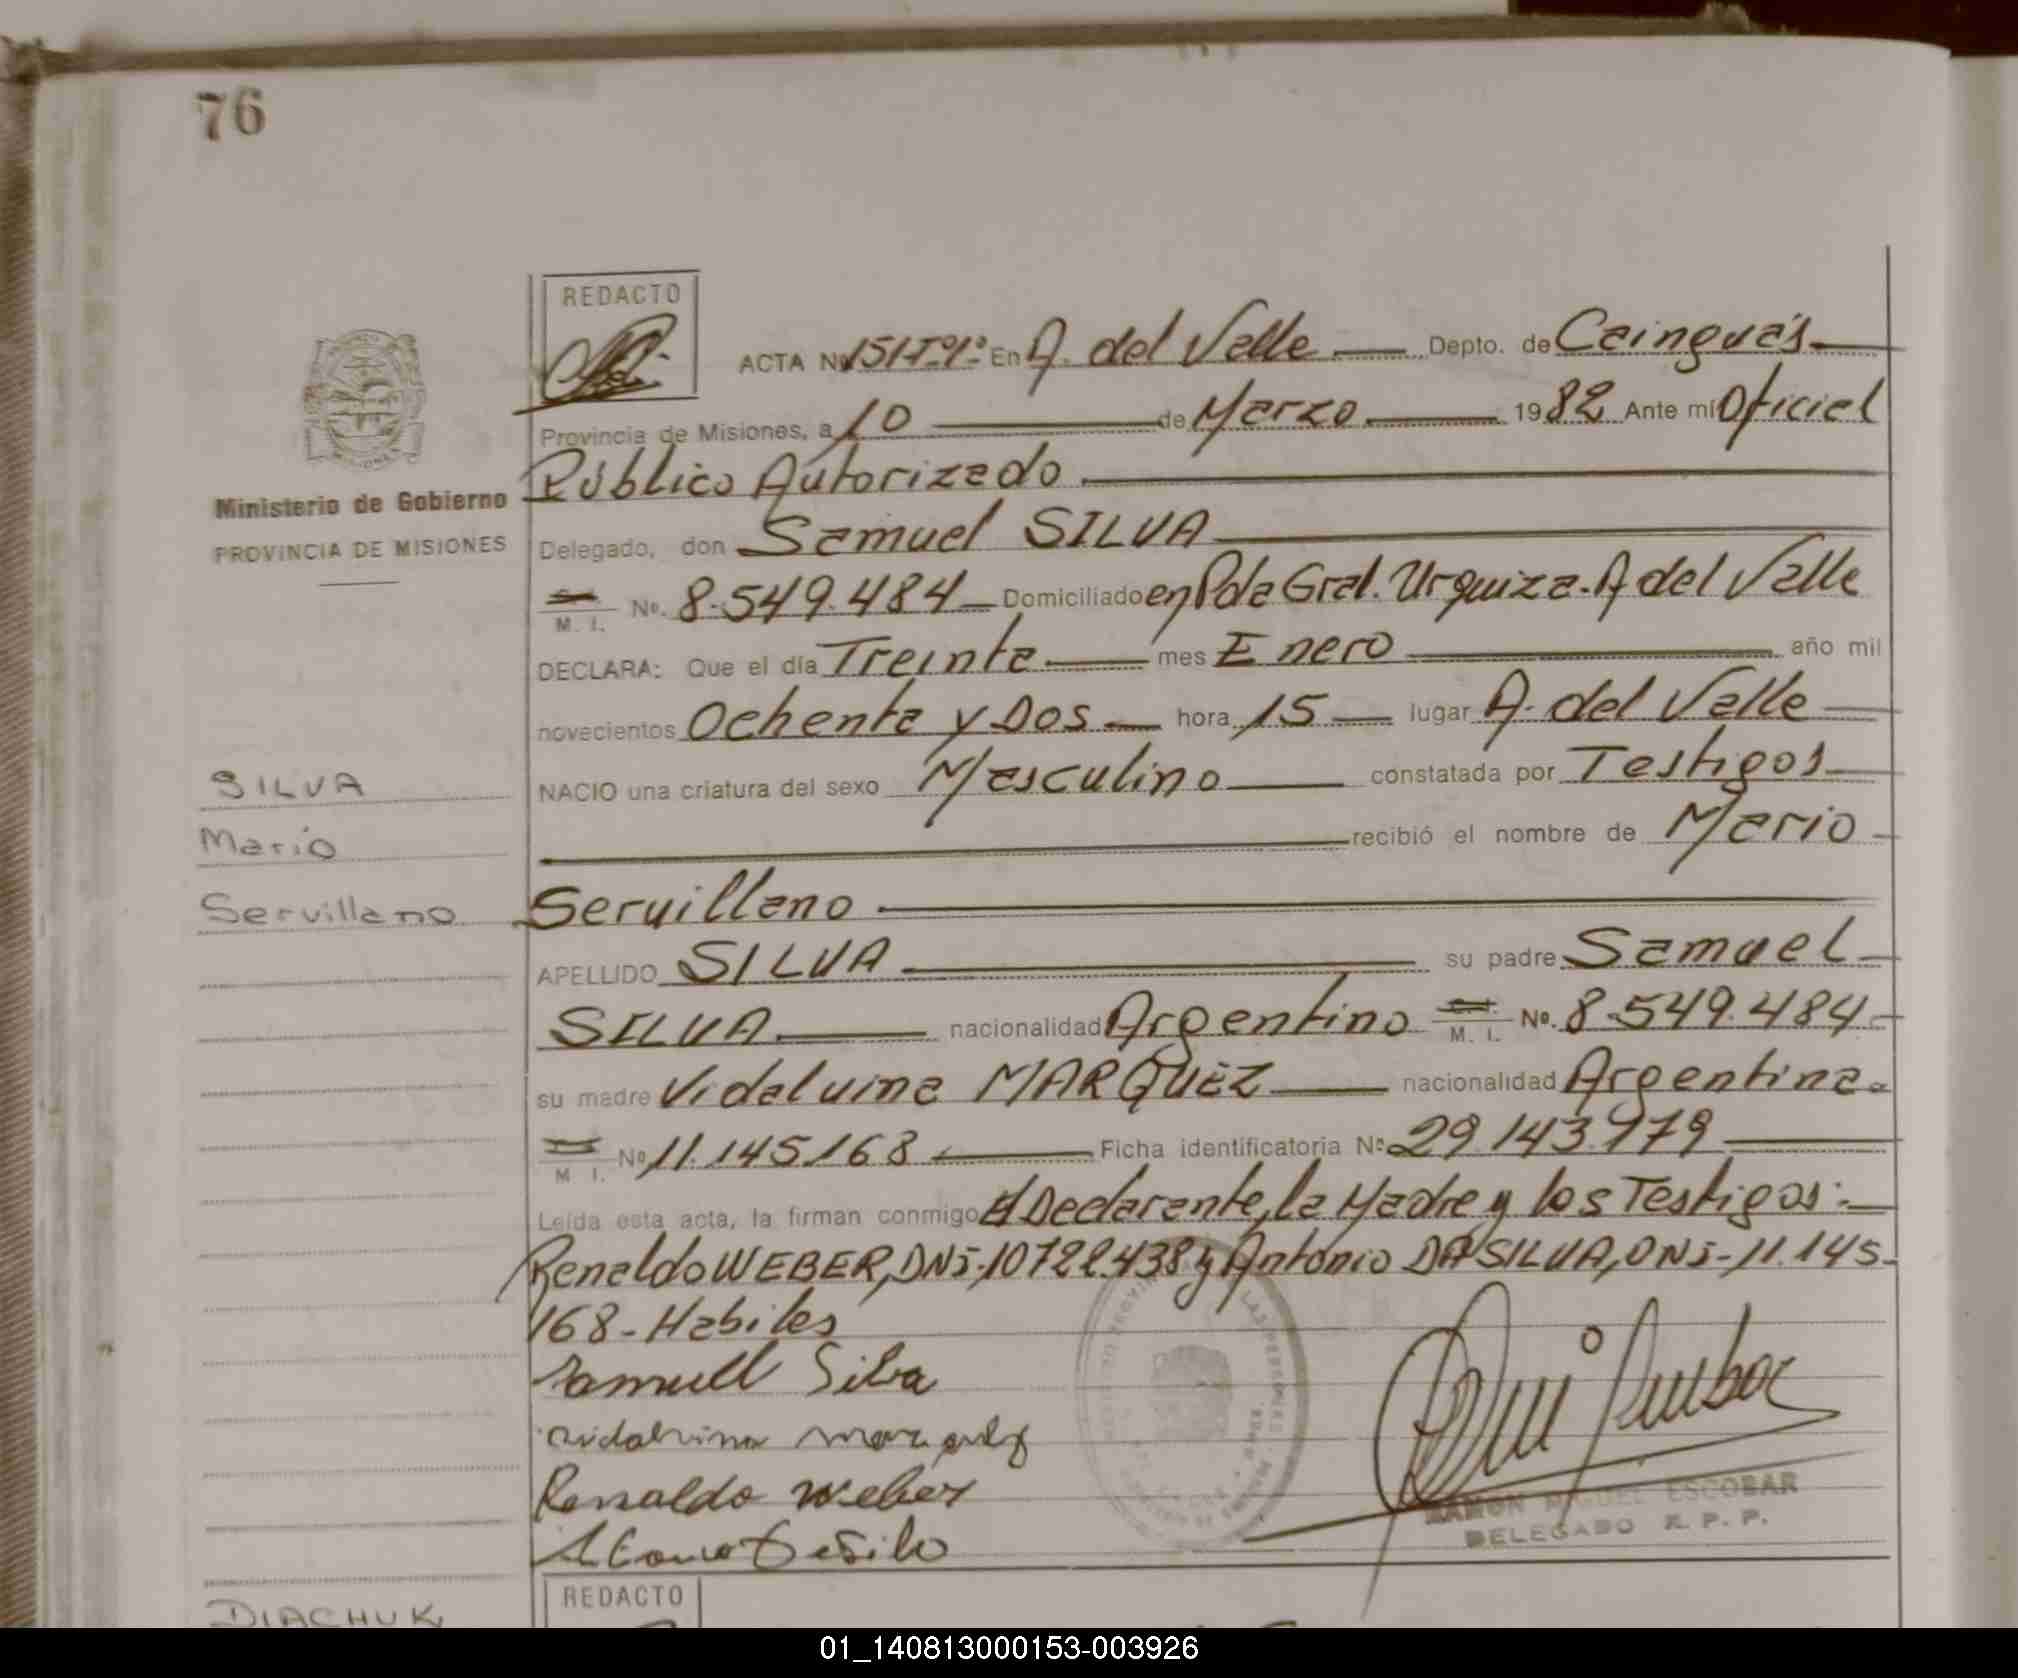 76
REDACTO
ACTA Nº 151-Tº1º En A. del Valle Depto. de Cainguás
Provincia de Misiones, a 10 de Marzo 1982 Ante mí Oficial
Público Autorizado
Ministerio de Gobierno
PROVINCIA DE MISIONES
Delegado, don Samuel SILVA
M. I. No. 8.549.484 Domiciliado en Pda Gral. Urquiza. A del Valle
DECLARA: Que el día Treinta mes Enero año mil
novecientos Ochenta y Dos hora 15 lugar A. del Valle
SILVA
NACIO una criatura del sexo Masculino constatada por Testigos
Mario
recibió el nombre de Mario
Servillano
Servillano
APELLIDO SILVA su padre Samuel
SILVA nacionalidad Argentino M. I. Nº. 8.549.484
su madre Vidalvina MARQUEZ nacionalidad Argentina
M I. Nº 11.145.168 Ficha identificatoria Nº 29.143.979
Leída esta acta, la firman conmigo El Declarante, la Madre y los Testigos:
Renaldo WEBER, DNI-10722.438 y Antonio DA SILVA, DNI-11.145.
168-Habiles
Samuell Silva
vidalvina marquez
Renaldo weber
RAMON MIGUEL ESCOBAR
DELEGADO R. P. P.
REDACTO
DIACHUK
01_140813000153-003926